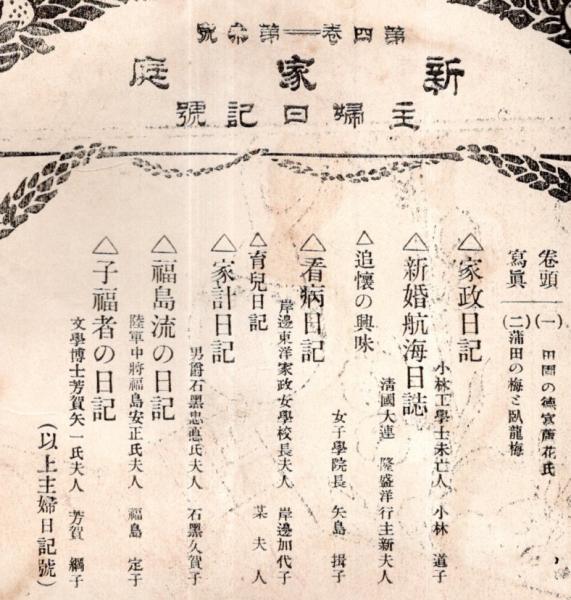 第四巻―第六號
新家庭
主婦日記號
巻頭寫眞
(一)田園の德冨蘆花氏
(二)蒲田の梅と臥龍梅
△家政日記
小林工學士未亡人 小林道子
△新婚航海日誌
清國大連 隆盛洋行主新夫人
△追懐の興味
女子學院長 矢島揖子
△看病日記
岸邊東洋家政女學校長夫人 岸邊加代子
△育兒日記
某夫人
△家計日記
男爵石黑忠悳氏夫人 石黑久賀子
△福島流の日記
陸軍中將福島安正氏夫人 福島定子
△子福者の日記
文學博士芳賀矢一氏夫人 芳賀綱子
(以上主婦日記號)